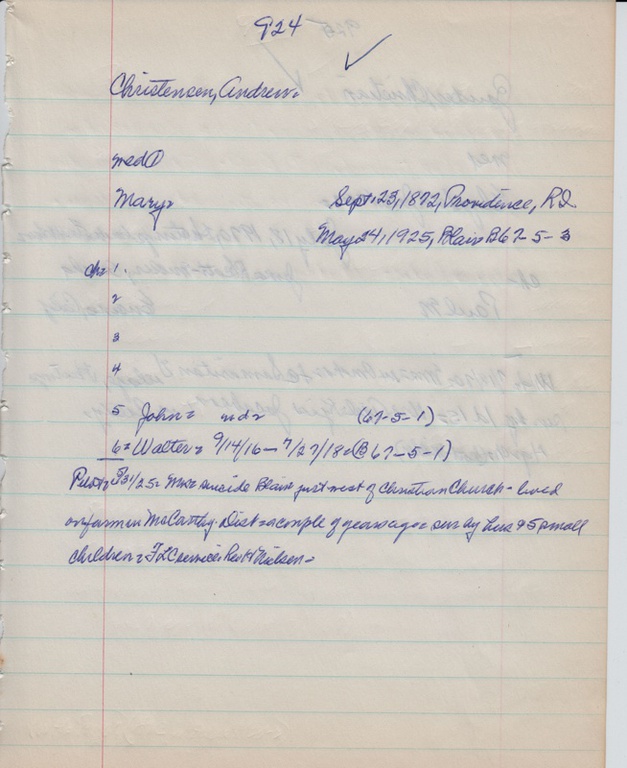 924
Christensen, Andrew=
med ①
Mary= Sept. 23, 1872, Providence, R.I.
May 24, 1925, Blair B67-5-3
ch= 1.
2
3
4
5 John= nd= (67-5-1)
6= Walter= 9/14/16- 7/27/18= (B67-5-1)
5/31/25= Mrs= suicide Blair just west of Christian Church - lived
on farm in McCarthy Dist= a couple of years ago= sur by hus & 5 small
children= Rev H Nielsen=